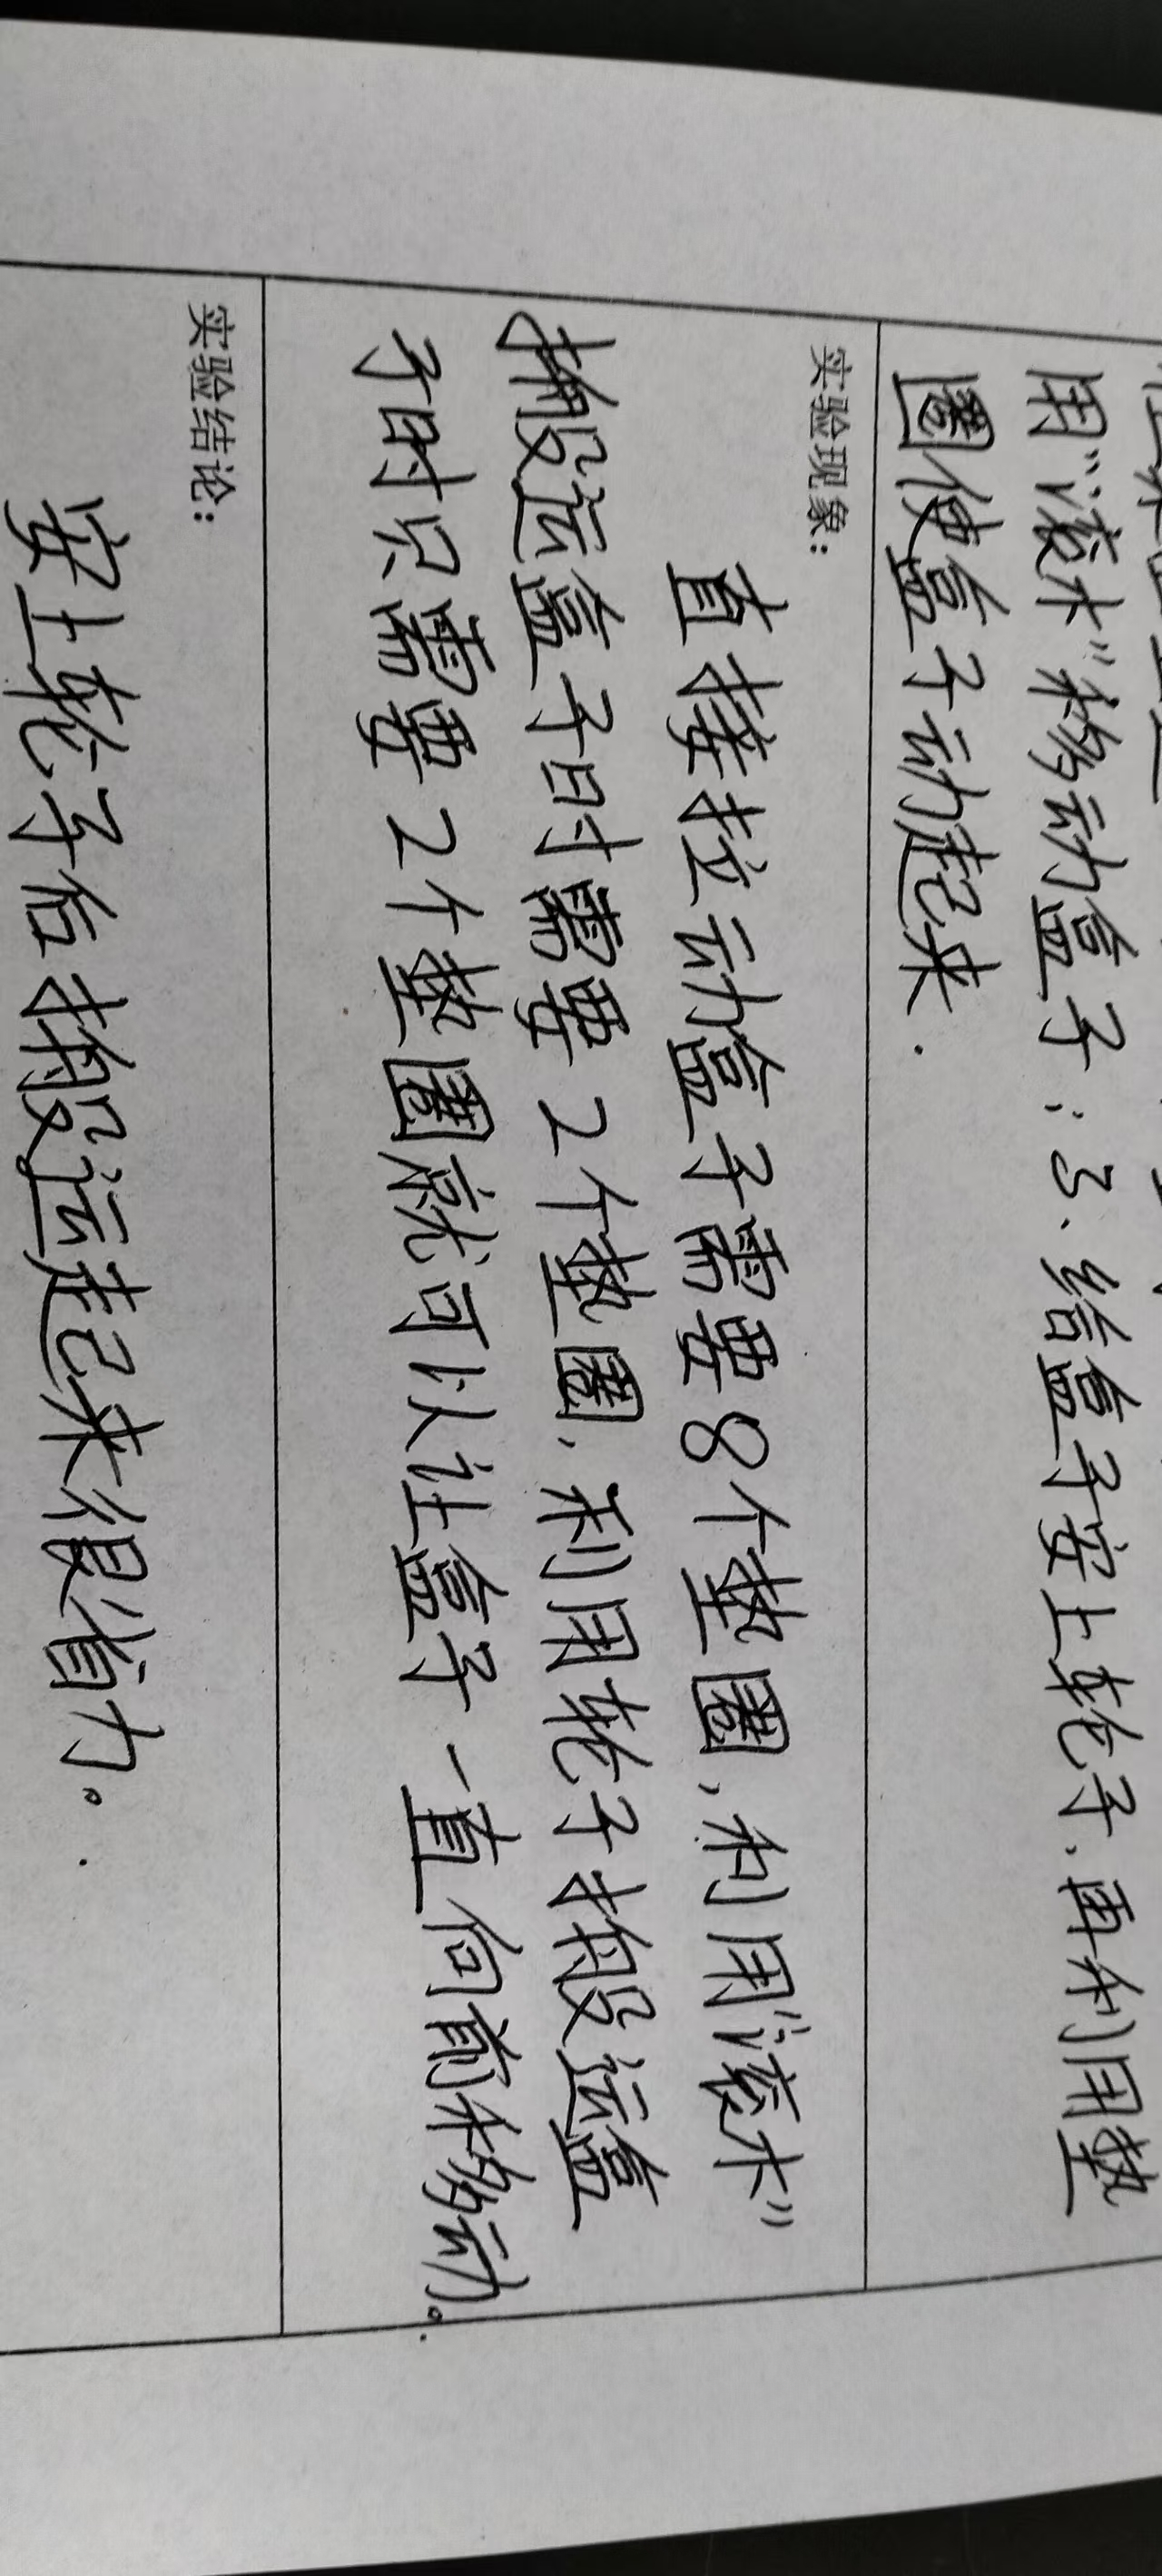 用"滚木"移动盒子；3.给盒子安上轮子，再利用垫
圈使盒子动起来．
实验现象：
直接拉动盒子需要8个垫圈，利用"滚木"
搬运盒子时需要2个垫圈，利用轮子搬运盒
子时只需要2个垫圈就可以让盒子一直向前移动。
实验结论：
安上轮子后搬运起来很省力。